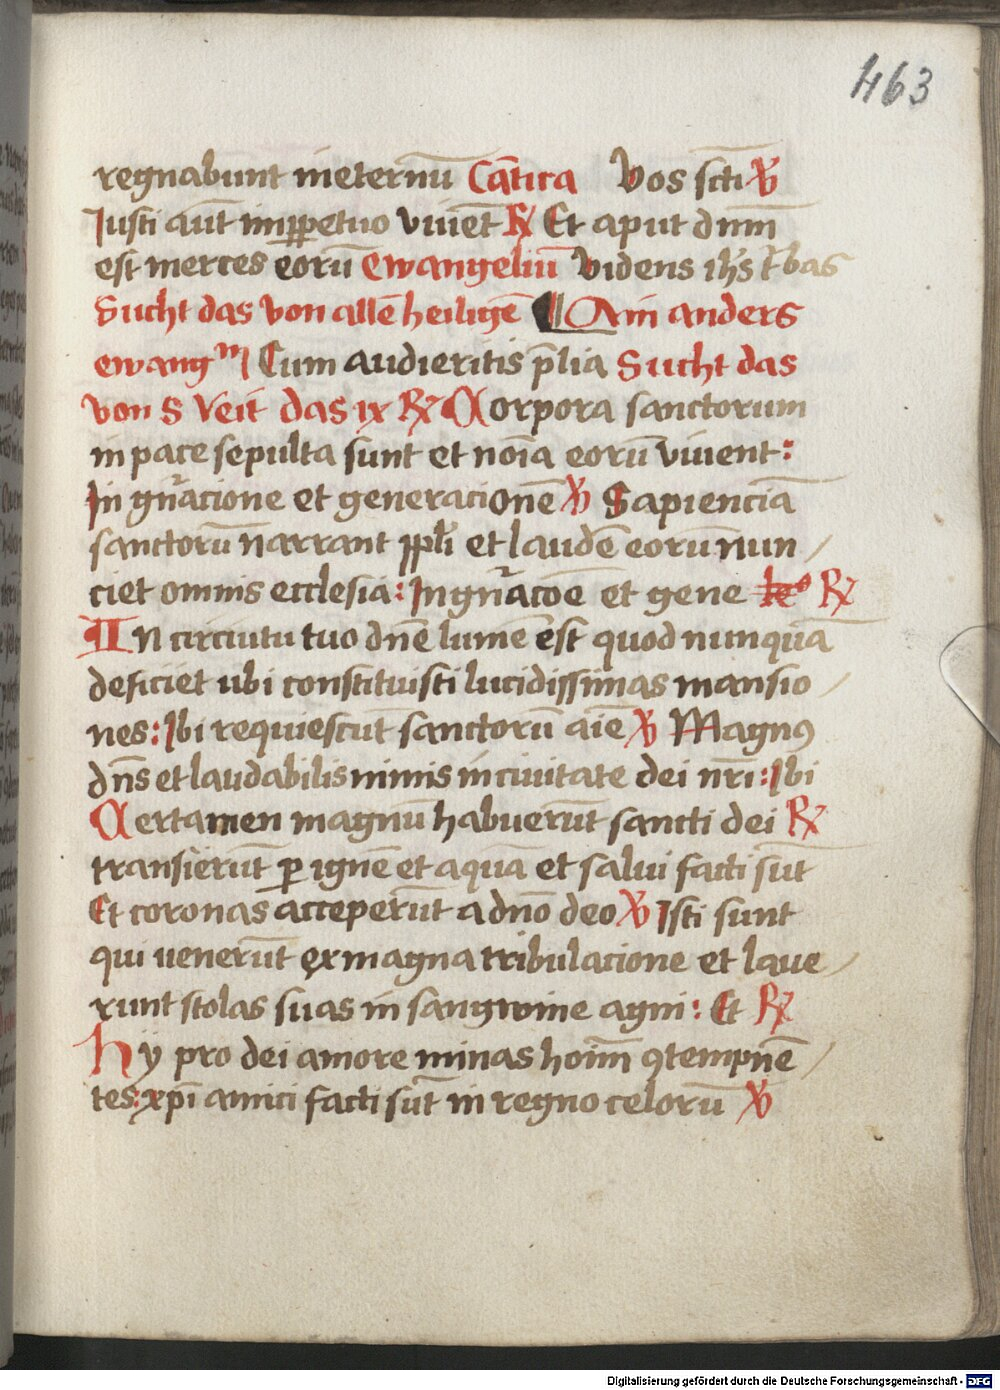 463
regnabunt ineternū Cātica Vos scti ℣
Iusti aūt imꝑpetuo viuēt ℟ Et aput dnm̄
est merces eorū Ewangeliū Videns ih̄s t̄bas
Sucht das von allē heiligē ¶ Ain anders
ewangm Cum audieritis p̄lia Sucht das
von S Veit das ix ℟ Corpora sanctorum
in pace sepulta sunt et noīa eorū viuent:
In gn̄acione et generacionē ℣ Sapienciā
sanctorū narrant ppl̄i et laudē eorū nun /
ciet omnis ecclesia: In gn̄acōe et gene ℟
IN circuitu tuo dnē lumē est quod nunquā
deficiet ubi constituisti lucidissimas mansio /
nes: Ibi requiescūt sanctorū aīe ℣ Magnꝯ
dn̄s et laudabilis nimis in ciuitate dei nr̄i: Ibi
Certamen magnū habuerūt sancti dei ℟
transierūt ꝑ ignē et aquā et salui facti sūt
Et coronas acceperūt a dno deo ℣ Isti sunt
qui venerūt ex magna tribulacione et laue /
runt stolas suas in sangwine agni: Et ℟
Hy pro dei amore minas hoīm ꝯtempnē /
tes: xp̄i amici facti sūt in regno celorū ℣
Digitalisierung gefördert durch die Deutsche Forschungsgemeinschaft - DFG